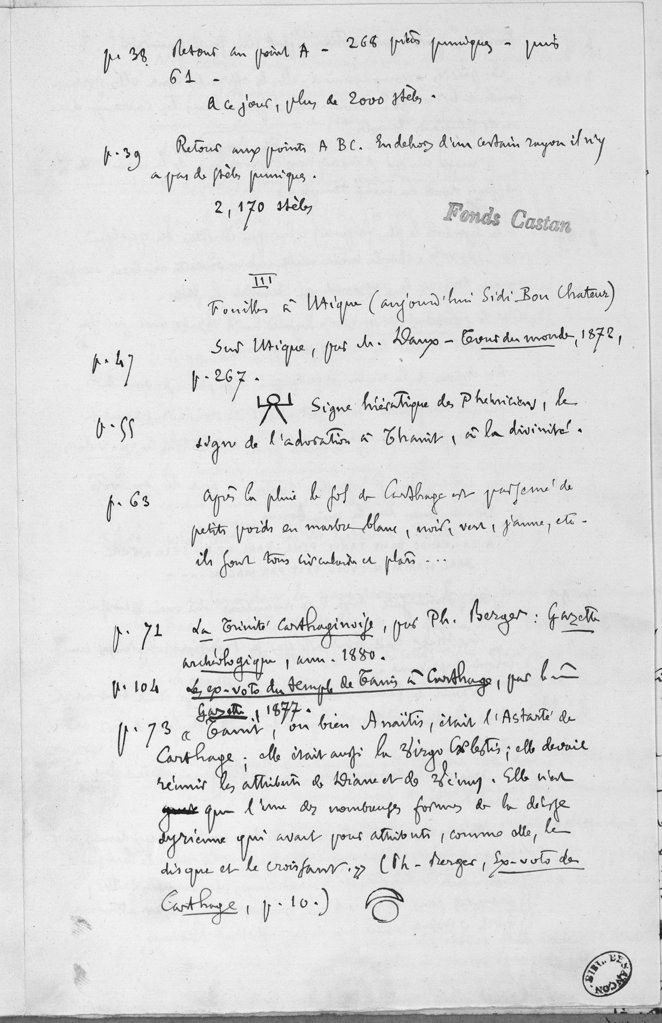 p. 38 Retour au point A - 268 pieds puniques - puis
61 -
A ce jour, plus de 2000 stèles.
p. 39 Retour aux points A BC. En dehors d'un certain rayon il n'y
a pas de stèles puniques.
2,170 stèles
Fonds Castan
III
Fouilles à Utique (aujourd'hui Sidi-Bou Chateur)
Sur Utique, par M. Daux - Tour du monde, 1872,
p. 47
p. 267.
Signe hiératique des Phéniciens, le
p. 55
signe de l'adoration à Thanit, à la divinité.
p. 63 Après la pluie le sol de Carthage est parsemé de
petits poids en marbre blanc, noir, vert, jaune, etc.
ils sont tous circulaires et plats...
p. 71 La Trinité Carthaginoise, par Ph. Berger : Gazette
archéologique, ann. 1880.
p. 104 Les ex-voto du temple de Tanis à Carthage, par le m
Gazette, 1877.
p. 73 « Tanit, ou bien Anaïtis, était l'Astarté de
Carthage ; elle était aussi la Virgo Cælestis ; elle devait
réunir les attributs de Diane et de Vénus. Elle n'est
que l'une des nombreuses formes de la déesse
syrienne qui avait pour attributs, comme elle, le
disque et le croissant. » (Ph. Berger, Ex-voto de
Carthage, p. 10.)
BIBL. BESANÇON